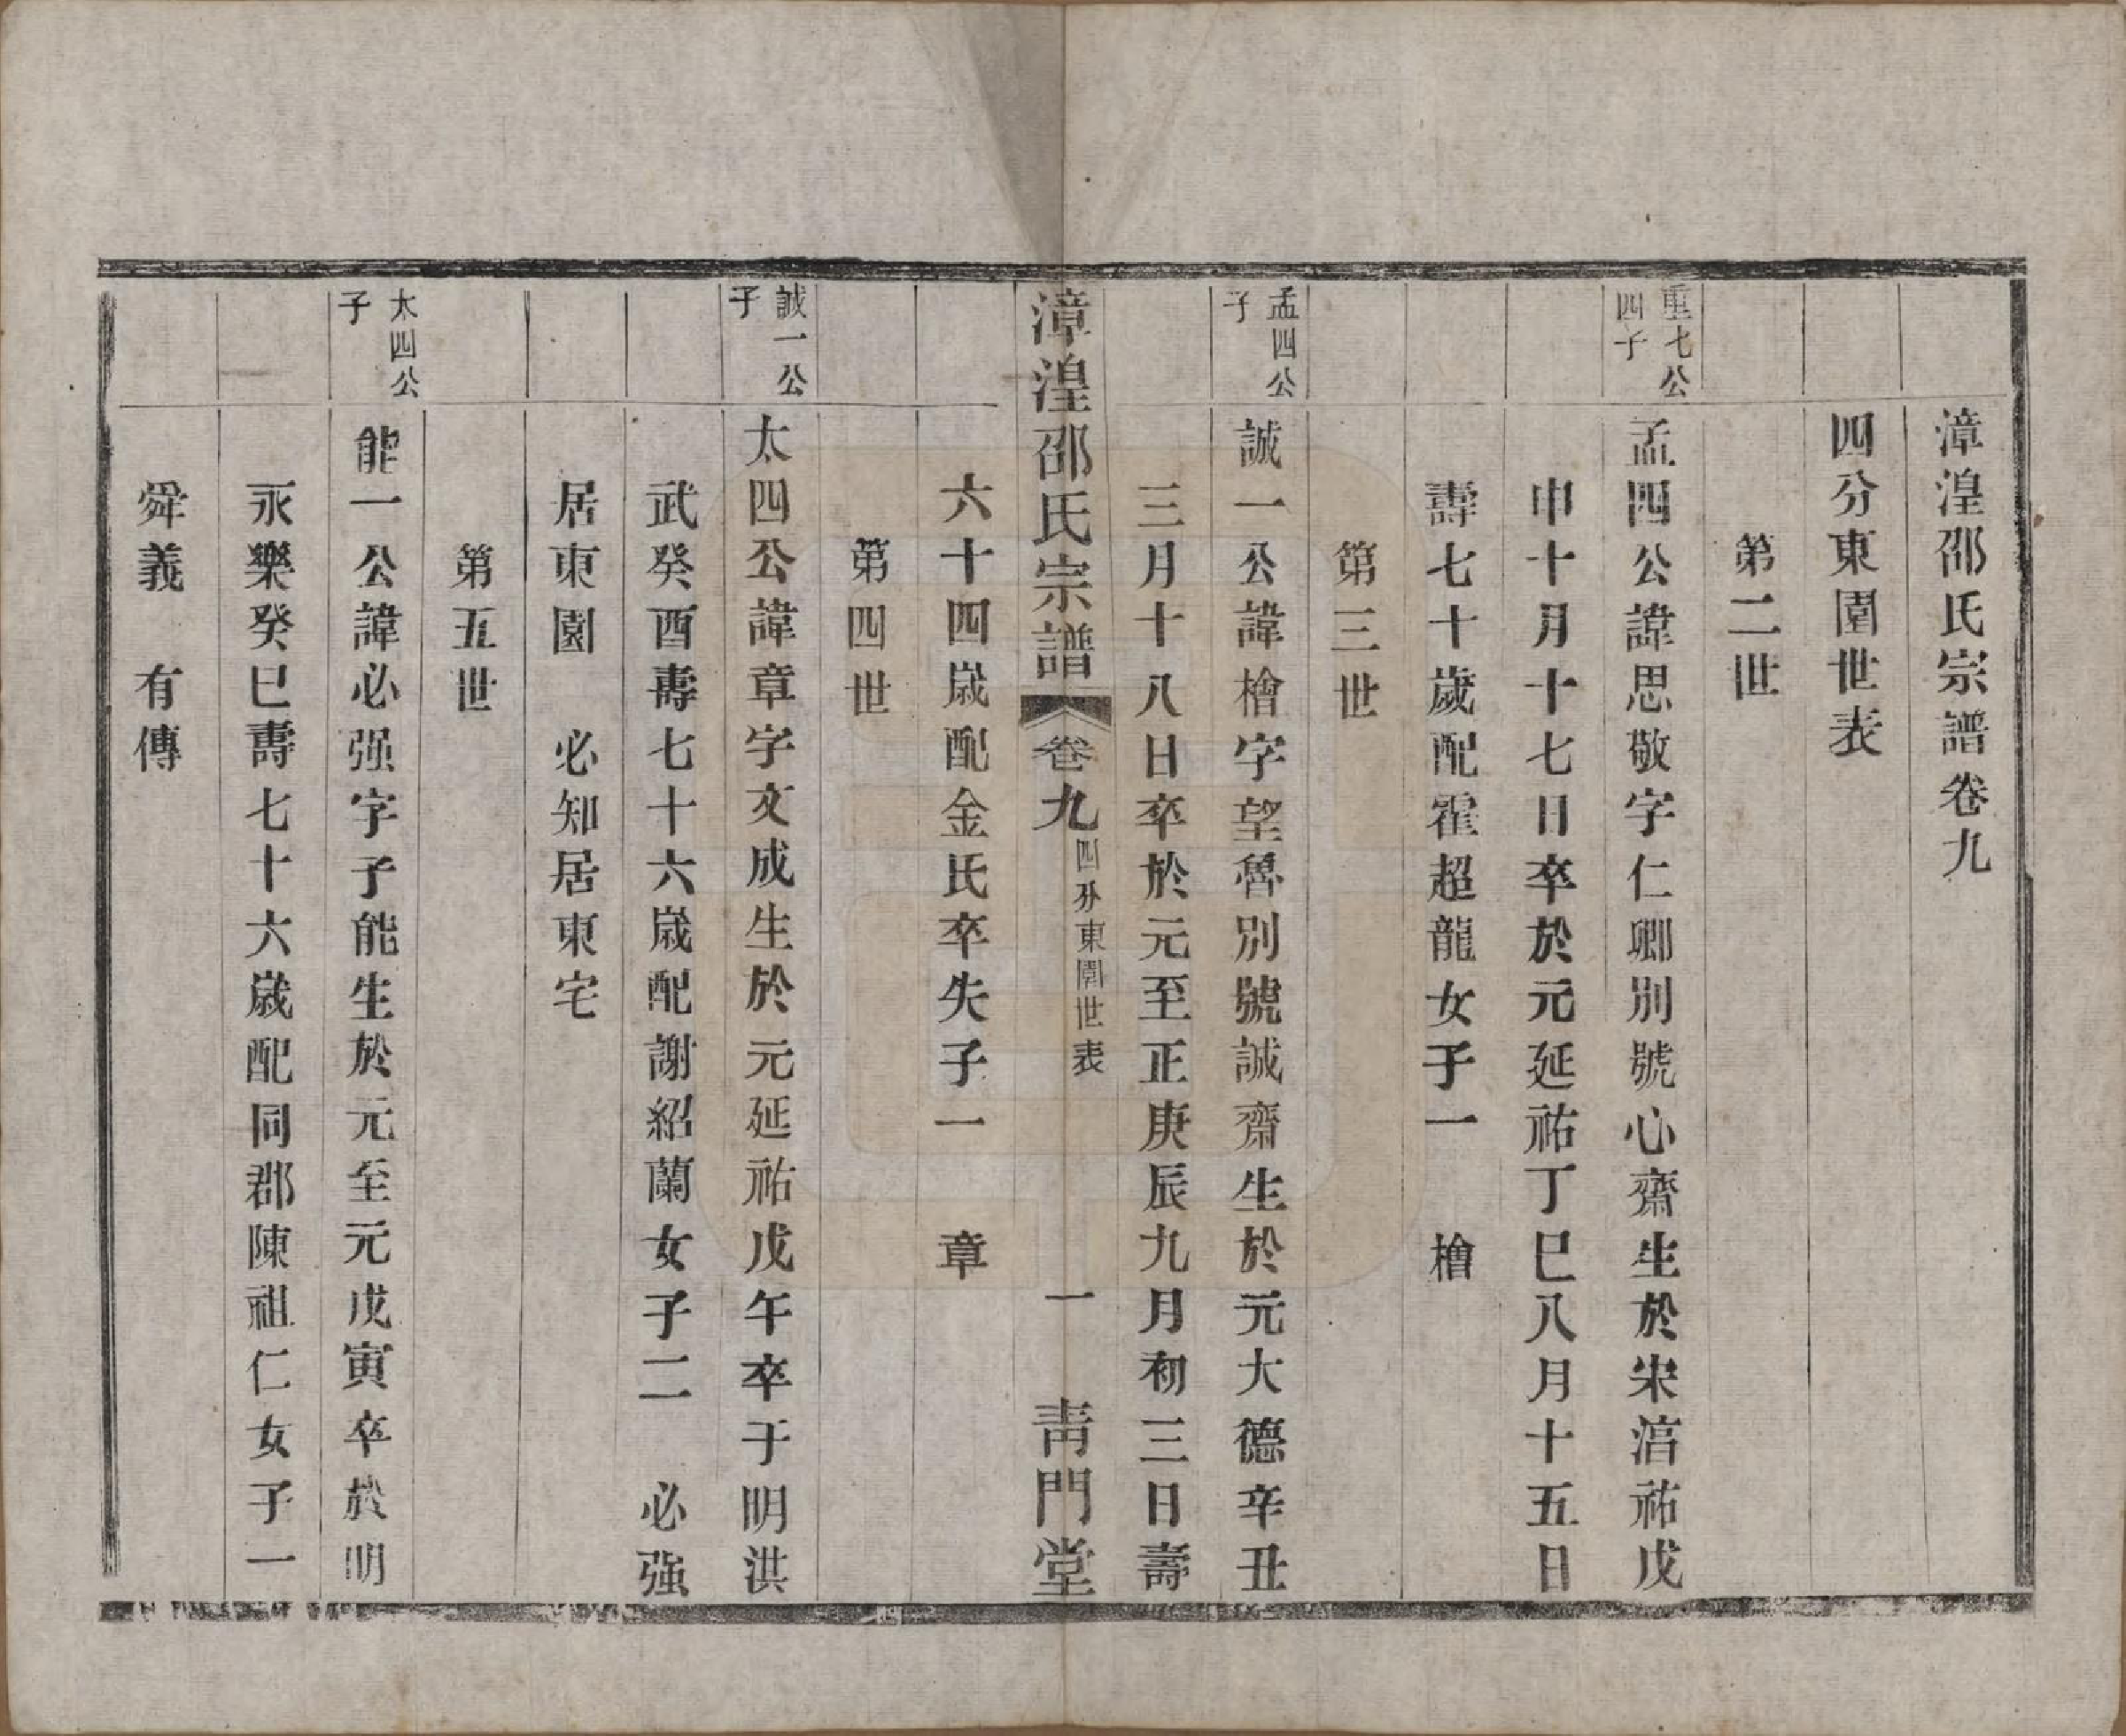 漳湟邵氏宗譜卷九
四分東園世表
第二世
重七公四子
孟四公諱思敬字仁卿別號心齋生於宋淯祐戊
申十月十七日卒於元延祐丁巳八月十五日
壽七十歲配霍超龍女子一　檜
第三世
孟四公子
誠一公諱檜字望魯別號誠齋生於元大德辛丑
三月十八日卒於元至正庚辰九月初三日壽
漳湟邵氏宗譜　卷九　四分東園世表　一　靑門堂
六十四歲配金氏卒失子一　章
第四世
誠一公子
太四公諱章字文成生於元延祐戊午卒于明洪
武癸酉壽七十六歲配謝紹蘭女子二　必强
居東園　必知居東宅
第五世
太四公子
能一公諱必强字子能生於元至元戊寅卒於明
永樂癸巳壽七十六歲配同郡陳祖仁女子一
舜義　有傳